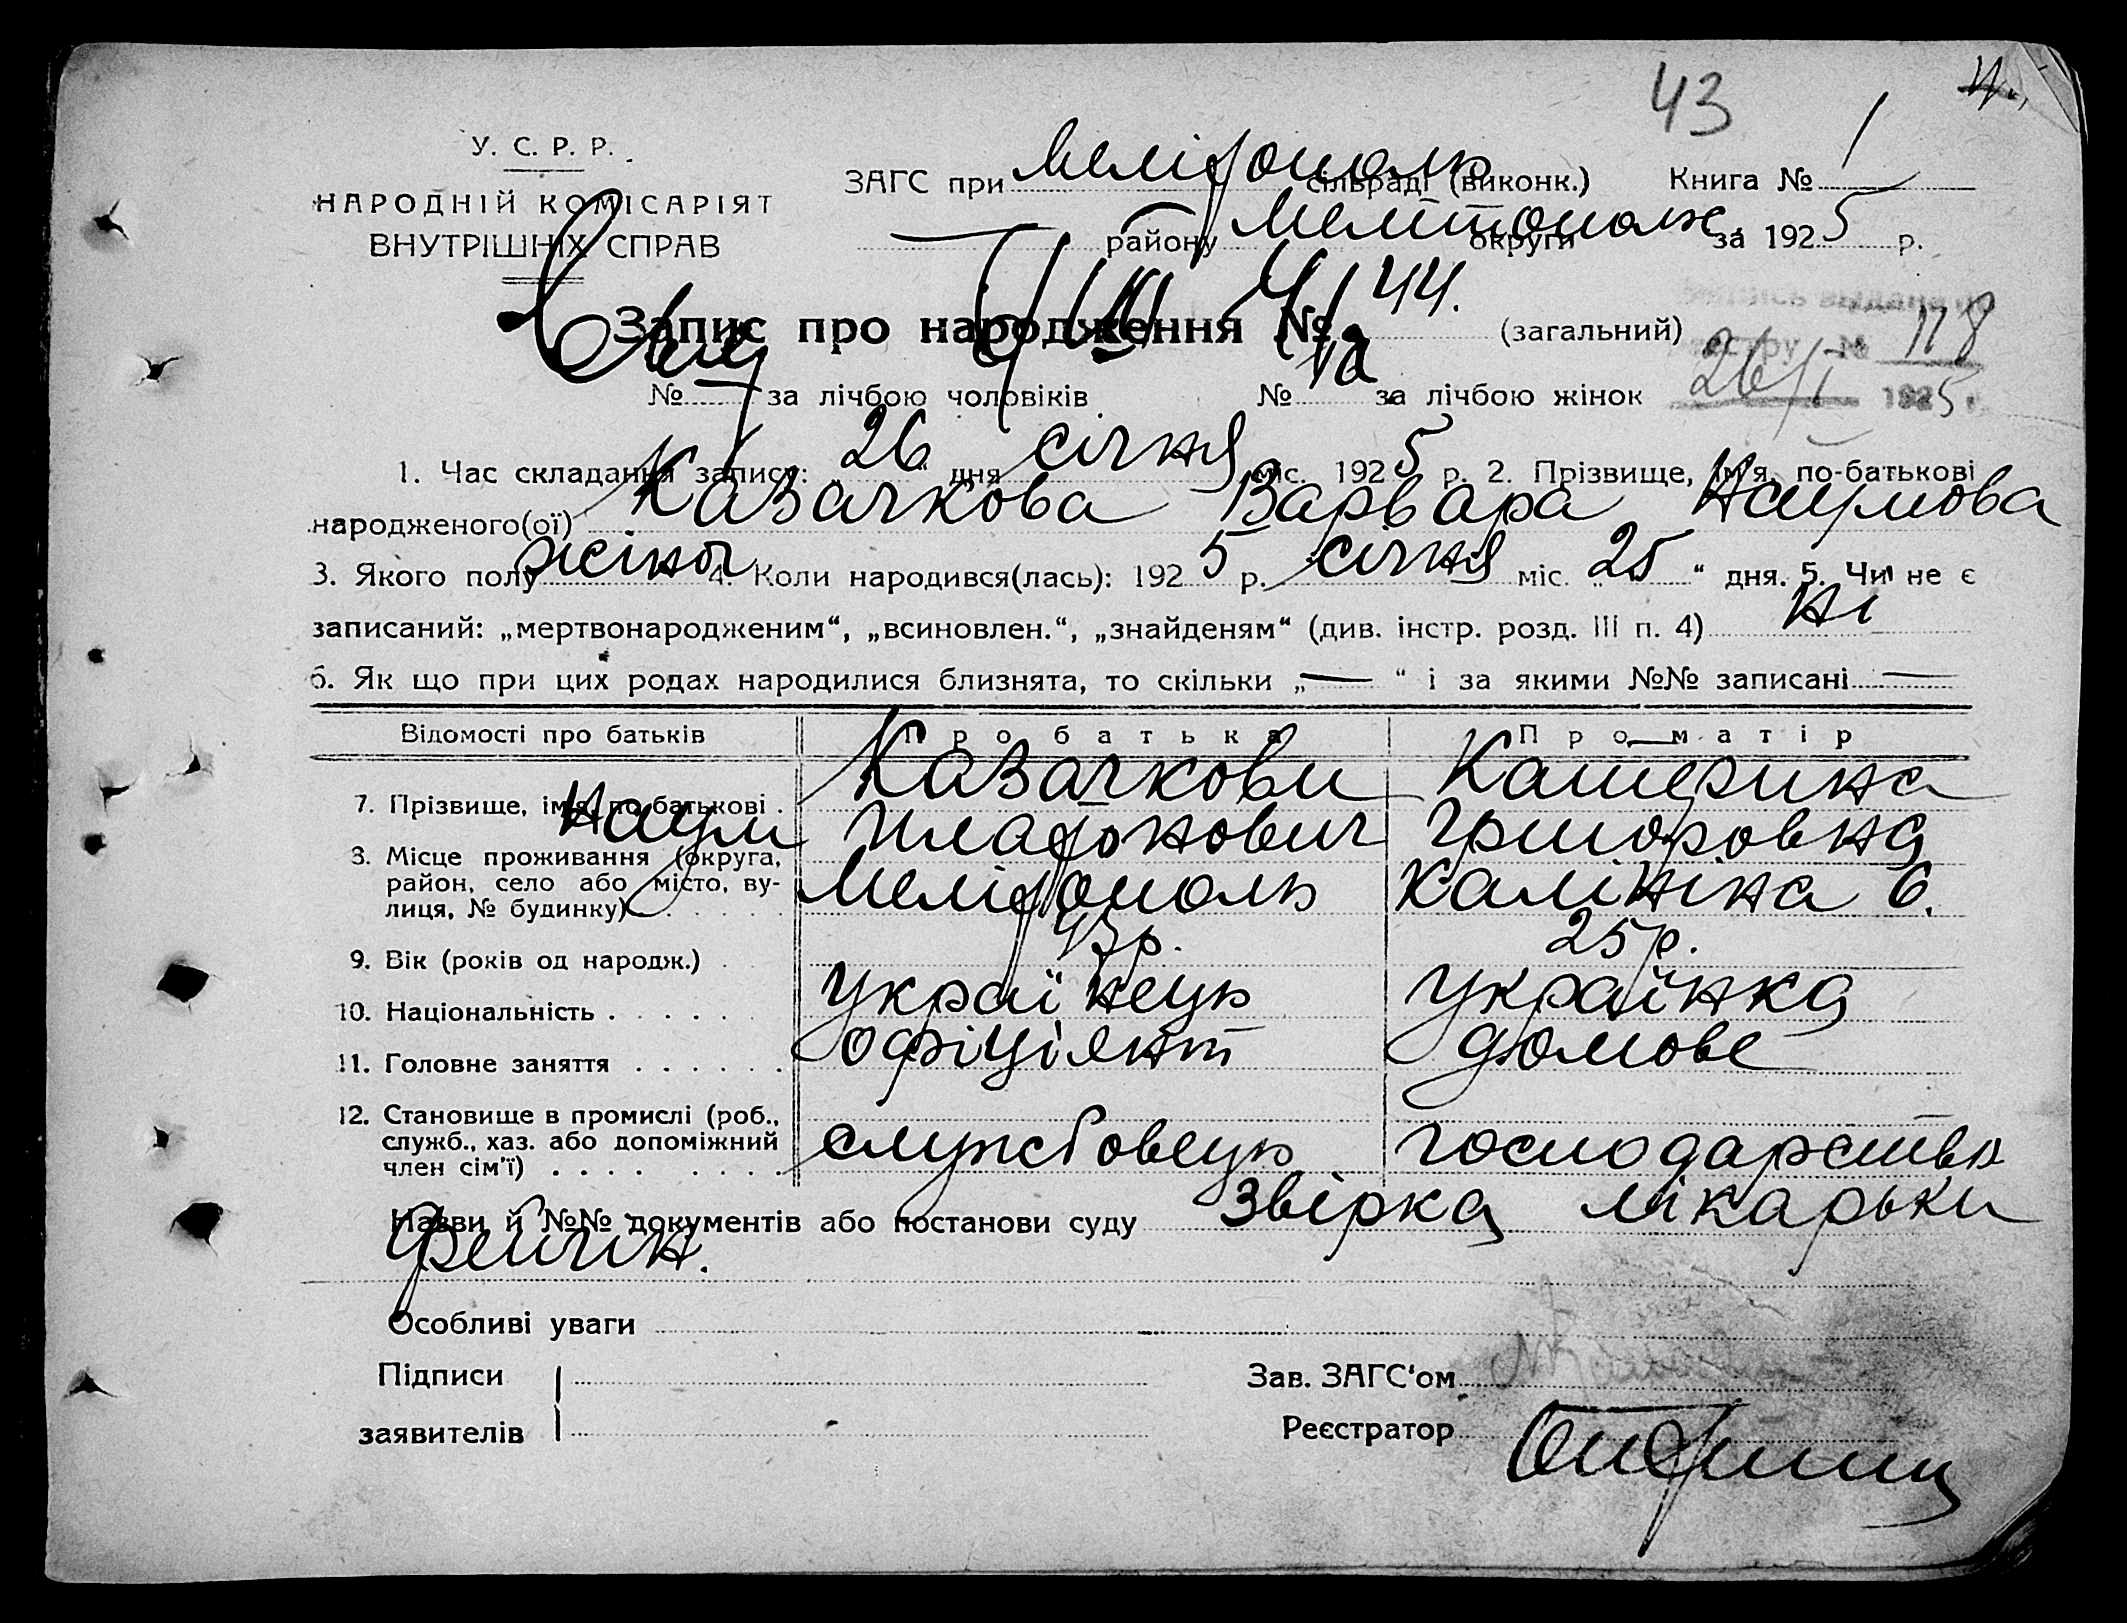 43
У. С. Р. Р.
НАРОДНІЙ КОМІСАРІЯТ
ВНУТРІШНІХ СПРАВ
ЗАГС при Мелітополь сільраді (виконк.) Книга № 1
— району Мелітополь округи за 1925 р.
Запис про народження № 44. (загальний)
№ — за лічбою чоловіків № за лічбою жінок
№ 118
26/I 1925
1. Час складання запису: „26“ дня січня міс. 1925 р. 2. Прізвище, ім'я, по-батькові
народженого(ої) Казачкова Варвара Наумова
3. Якого полу жіноч 4. Коли народився(лась): 1925 р. січня міс. „25“ дня. 5. Чи не є
записаний: „мертвонародженим“, „всиновлен.“, „знайденям“ (див. інстр. розд. III п. 4) ні
6. Як що при цих родах народилися близнята, то скільки „—“ і за якими №№ записані —
Відомості про батьків Про батька Про матір
7. Прізвище, ім'я, по-батькові . Казачкови Катерина
Наум Платонович Григоровна
8. Місце проживання (округа,
район, село або місто, ву-
лиця, № будинку) Мелітополь Калініна 6.
9. Вік (років од народж.) 43р. 25р.
10. Національність українець українка
11. Головне заняття офіціянт домове
12. Становище в промислі (роб.,
служб., хаз. або допоміжний
член сім'ї) службовець господарство
Назви й №№ документів або постанови суду Звірка лікарьки
Фейгін.
Особливі уваги
Підписи
заявителів
Зав. ЗАГС'ом
Реєстратор